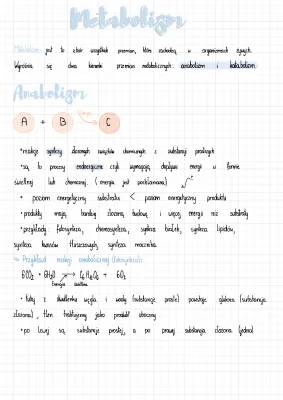 Metabolizm
Metabolizm jest to zbiór wszystkich przemian, które zachodzą w organizmach żywych.
Wyróżnia się dwa kierunki przemian metabolicznych: anabolizm i katabolizm.
Anabolizm
A + B → C
• reakcje syntezy złożonych związków chemicznych z substancji prostych
• są to procesy endoergiczne czyli wymagają dopływu energii w formie
świetlnej lub chemicznej. (energia jest pochłaniana)
• poziom energetyczny substratu < poziom energetyczny produktu
• produkty mają bardziej złożoną budowę i więcej energii niż substraty
• przykłady: fotosynteza, chemosynteza, synteza białek, synteza lipidów,
synteza kwasów tłuszczowych, synteza mocznika.
↳ Przykład reakcji anabolicznej (fotosynteza)
6CO₂ + 6H₂O → C₆H₁₂O₆ + 6O₂
Energia świetlna
• tutaj z dwutlenku węgla i wody (substancje proste) powstaje glukoza (substancja
złożona), tlen traktujemy jako produkt uboczny
• po lewej są substancje proste, a po prawej substancja złożona (jedna)